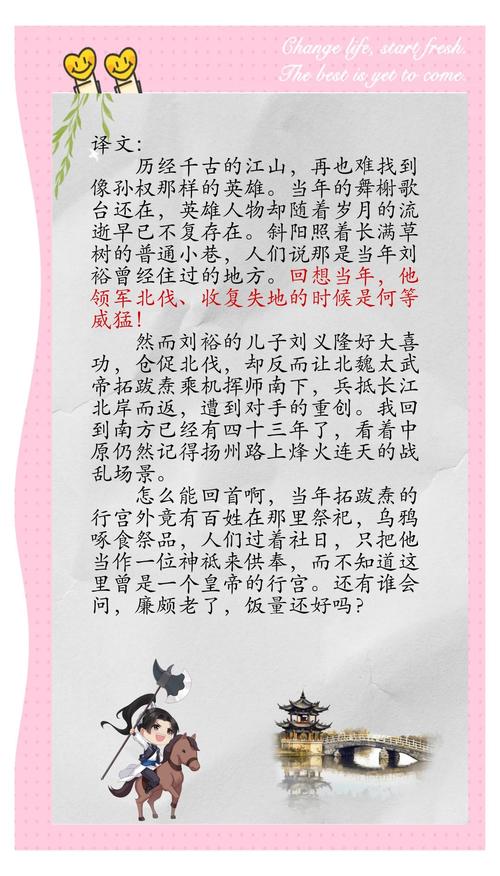 Change life, start fresh.
The best is yet to come.
译文：
历经千古的江山，再也难找到
像孙权那样的英雄。当年的舞榭歌
台还在，英雄人物却随着岁月的流
逝早已不复存在。斜阳照着长满草
树的普通小巷，人们说那是当年刘
裕曾经住过的地方。回想当年，他
领军北伐、收复失地的时候是何等
威猛！
然而刘裕的儿子刘义隆好大喜
功，仓促北伐，却反而让北魏太武
帝拓跋焘乘机挥师南下，兵抵长江
北岸而返，遭到对手的重创。我回
到南方已经有四十三年了，看着中
原仍然记得扬州路上烽火连天的战
乱场景。
怎么能回首啊，当年拓跋焘的
行宫外竟有百姓在那里祭祀，乌鸦
啄食祭品，人们过着社日，只把他
当作一位神祇来供奉，而不知道这
里曾是一个皇帝的行宫。还有谁会
问，廉颇老了，饭量还好吗？